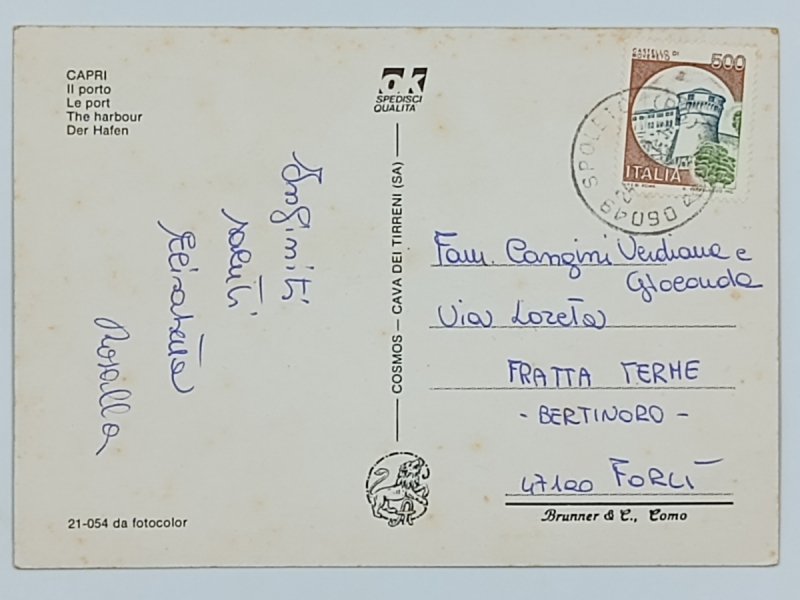 CAPRI
Il porto
Le port
The harbour
Der Hafen
OK
SPEDISCI
QUALITÀ
500
ITALIA
06049 SPOLETO
Infiniti
saluti
Elisabetta
Rosalba
COSMOS — CAVA DEI TIRRENI (SA)
Fam. Cangini Verdiana e
Gioconda
Via Loreta
FRATTA TERME
- BERTINORO -
47100 FORLÌ
21-054 da fotocolor
Brunner & C., Como